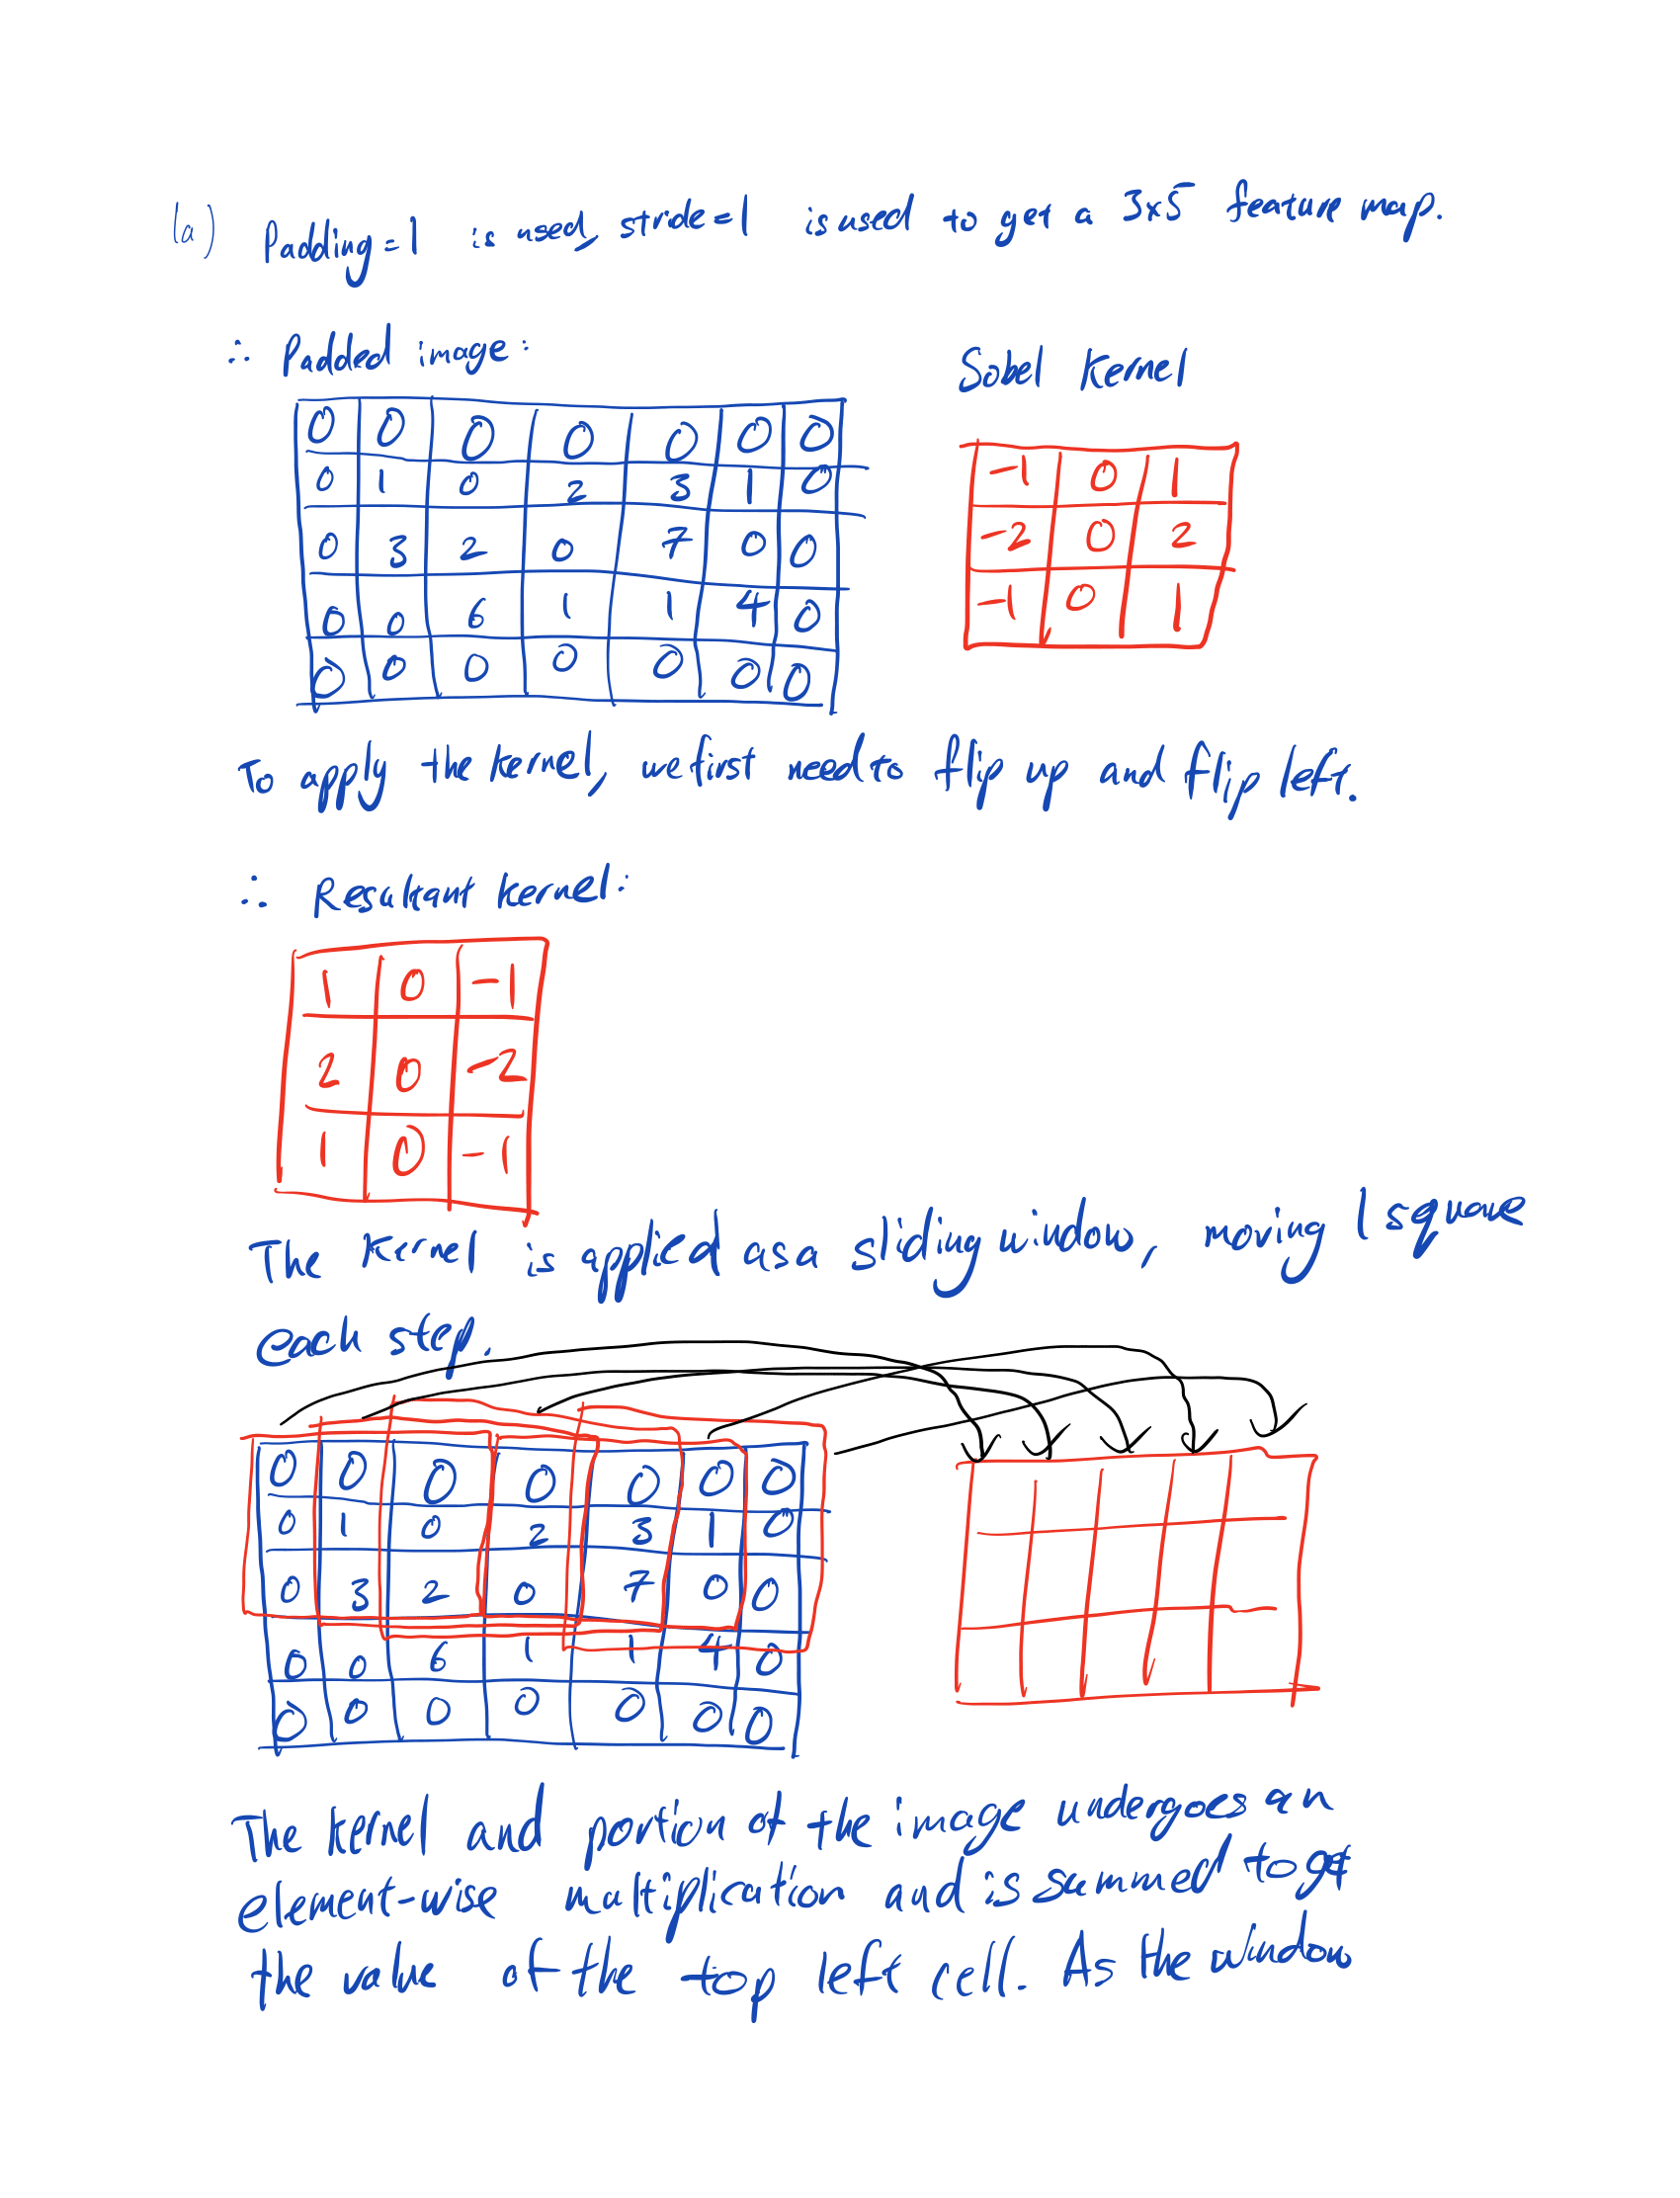 1a) Padding=1 is used, stride=1 is used to get a 3x5 feature map.
∴ Padded image:
Sobel Kernel
0 0 0 0 0 0 0
0 1 0 2 3 1 0
0 3 2 0 7 0 0
0 0 6 1 1 4 0
0 0 0 0 0 0 0
-1 0 1
-2 0 2
-1 0 1
To apply the kernel, we first need to flip up and flip left.
∴ Resultant kernel:
1 0 -1
2 0 -2
1 0 -1
The kernel is applied as a sliding window, moving 1 square
each step.
0 0 0 0 0 0 0
0 1 0 2 3 1 0
0 3 2 0 7 0 0
0 0 6 1 1 4 0
0 0 0 0 0 0 0
The kernel and portion of the image undergoes an
element-wise multiplication and is summed to get
the value of the top left cell. As the window